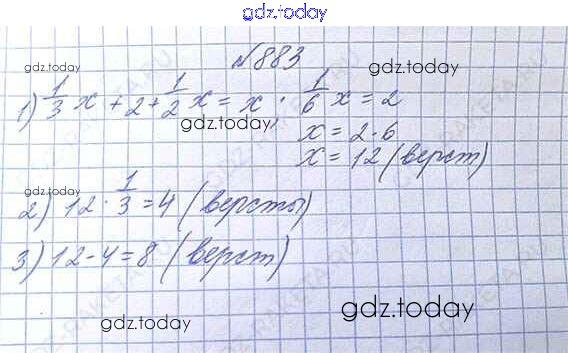 gdz.today
№883
gdz.today gdz.today
1) 1/3 x + 2 + 1/2 x = x; 1/6 x = 2
gdz.today
x = 2·6
x = 12 (верст)
gdz.today
2) 12 · 1/3 = 4 (версты)
3) 12 - 4 = 8 (верст)
gdz.today gdz.today